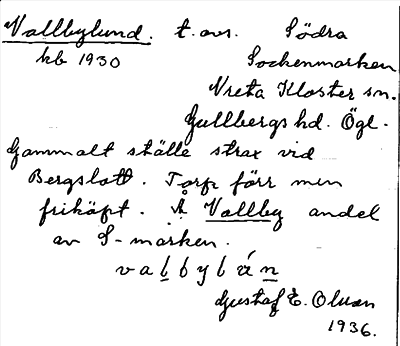 Vallbylund. t. avs. Södra
kb 1930 Sockenmarken
Vreta Kloster sn.
Gullbergs hd. Ögl.
Gammalt ställe strax vid
Bergslott. Torp förr men
friköpt. Å Vallby andel
av S-marken.
valbylún
Gustaf E. Olsson
1936.